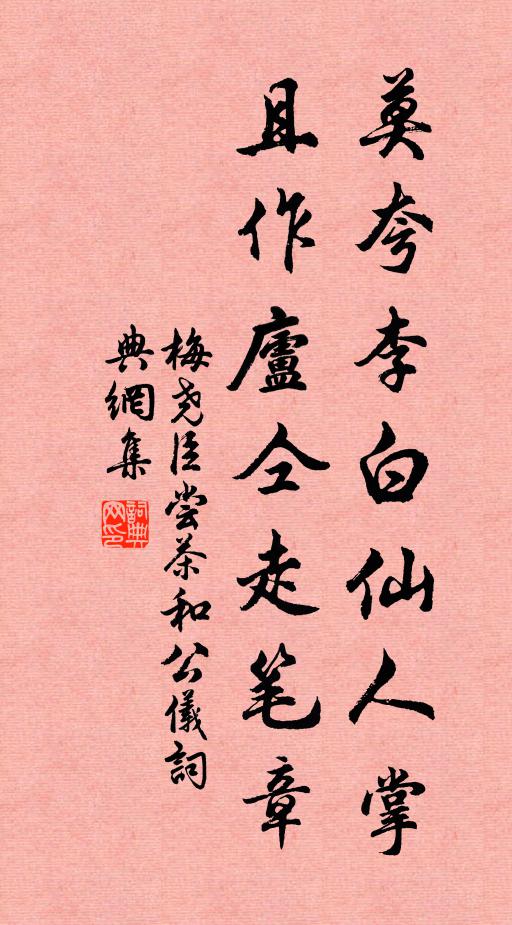 莫夸李白仙人掌
且作廬仝走笔章
梅尧臣尝茶和公儀詞
典網集
詞典网印